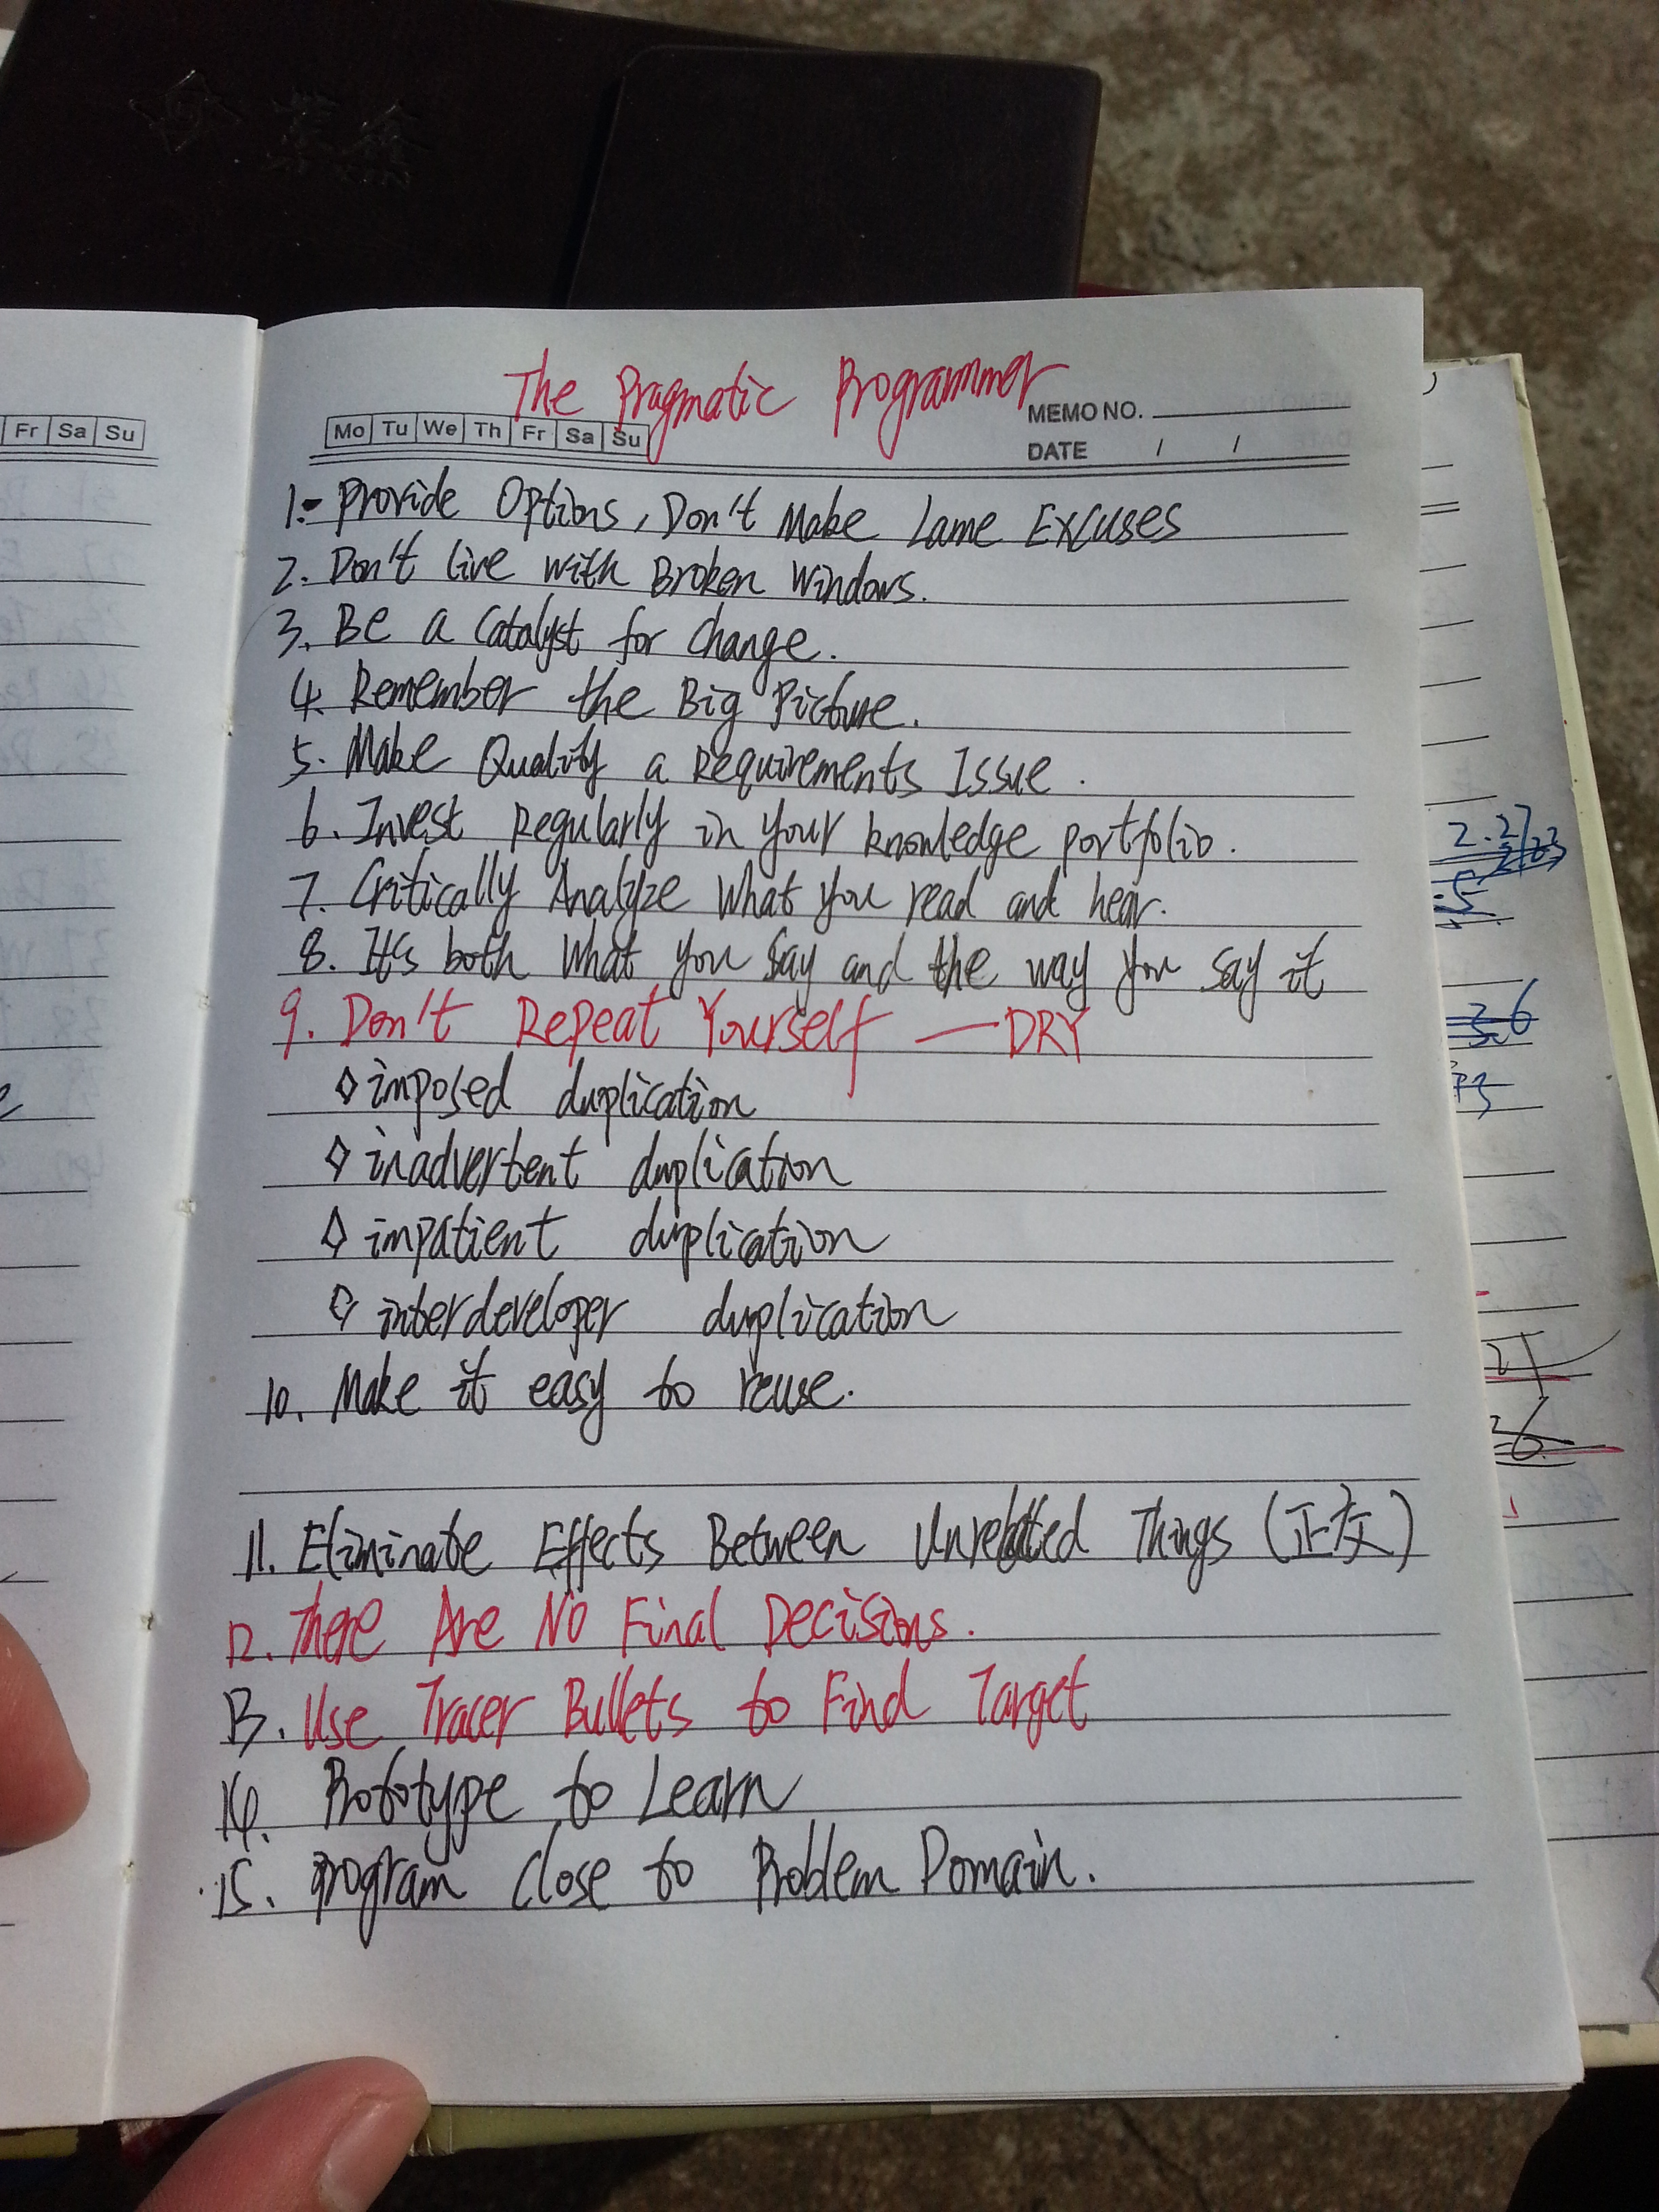 The Pragmatic Programmer
Fr Sa Su
Mo Tu We Th Fr Sa Su
MEMO NO.
DATE / /
1. Provide Options, Don't Make Lame Excuses
2. Don't live with Broken Windows.
3. Be a Catalyst for change.
4. Remember the Big Picture.
5. Make Quality a Requirements Issue.
6. Invest Regularly in your knowledge portfolio.
7. Critically Analyze What you read and hear.
8. It's both What you say and the way you say it
9. Don't Repeat Yourself — DRY
◇ imposed duplication
◇ inadvertent duplication
◇ impatient duplication
◇ interdeveloper duplication
10. Make it easy to reuse.
11. Eliminate Effects Between Unrelated Things (正交)
12. There Are No Final Decisions.
13. Use Tracer Bullets to Find Target
14. Prototype to Learn
15. program close to Problem Domain.